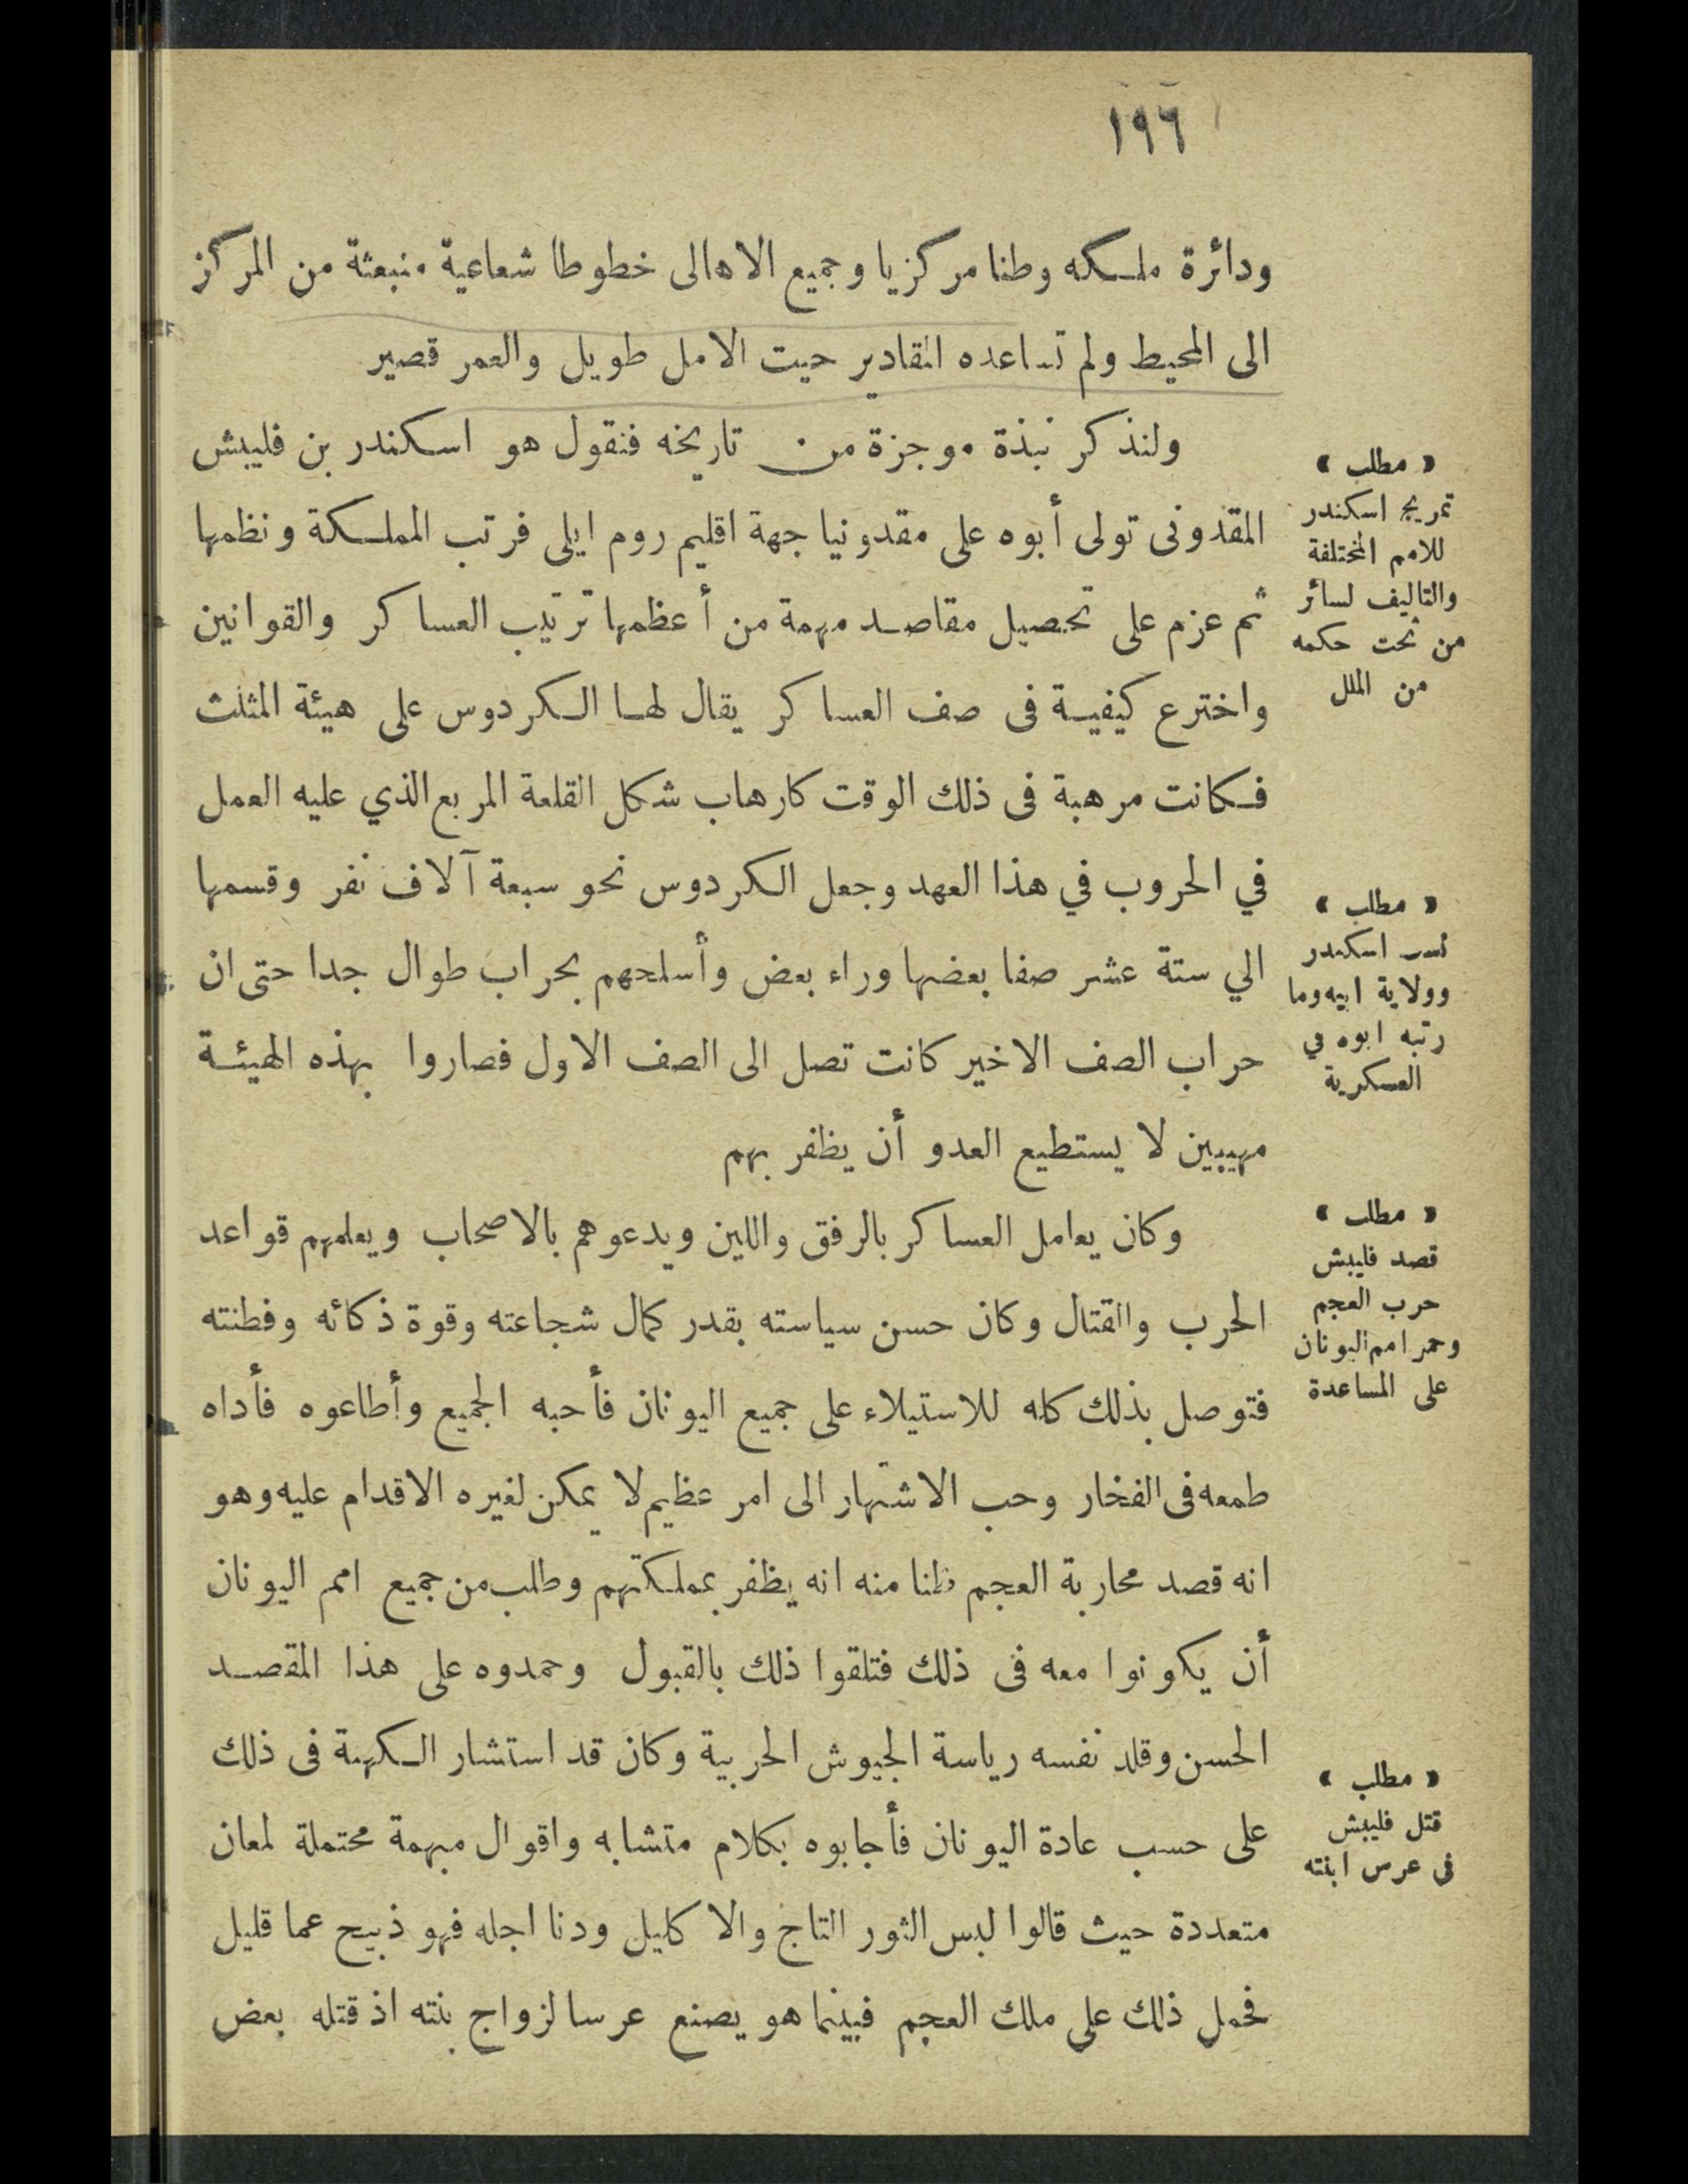 ١٩٦
ودائرة ملكه وطنا مركزيا وجميع الاهالى خطوطا شعاعية منبعثة من المركز
الى المحيط ولم تساعده المقادير حيت الامل طويل والعمر قصير
ولنذكر نبذة موجزة من تاريخه فنقول هو اسكندر بن فليبش
المقدونى تولى أبوه على مقدونيا جهة اقليم روم ايلى فرتب المملكة ونظمها
ثم عزم على تحصيل مقاصد مهمة من أعظمها ترتيب العساكر والقوانين
واخترع كيفية فى صف العساكر يقال لها الكردوس على هيئة المثلث
فكانت مرهبة فى ذلك الوقت كارهاب شكل القلعة المربع الذي عليه العمل
في الحروب في هذا العهد وجعل الكردوس نحو سبعة آلاف نفر وقسمها
الي ستة عشر صفا بعضها وراء بعض وأسلحهم بحراب طوال جدا حتى ان
حراب الصف الاخير كانت تصل الى الصف الاول فصاروا بهذه الهيئة
مهيبين لا يستطيع العدو أن يظفر بهم
وكان يعامل العساكر بالرفق واللين ويدعوهم بالاصحاب ويعلمهم قواعد
الحرب والقتال وكان حسن سياسته بقدر كمال شجاعته وقوة ذكائه وفطنته
فتوصل بذلك كله للاستيلاء على جميع اليونان فأحبه الجميع وأطاعوه فأداه
طمعه فى الفخار وحب الاشتهار الى امر عظيم لا يمكن لغيره الاقدام عليه وهو
انه قصد محاربة العجم ظنا منه انه يظفر بمملكتهم وطلب من جميع امم اليونان
أن يكونوا معه فى ذلك فتلقوا ذلك بالقبول وحمدوه على هذا المقصد
الحسن وقلد نفسه رياسة الجيوش الحربية وكان قد استشار الكهنة فى ذلك
على حسب عادة اليونان فأجابوه بكلام متشابه واقوال مبهمة محتملة لمعان
متعددة حيث قالوا لبس الثور التاج والاكليل ودنا اجله فهو ذبيح عما قليل
فحمل ذلك على ملك العجم فبينما هو يصنع عرسا لزواج بنته اذ قتله بعض
« مطلب »
تمريج اسكندر
للامم المختلفة
والتاليف لسائر
من تحت حكمه
من الملل
« مطلب »
نسب اسكندر
وولاية ابيه وما
رتبه ابوه في
العسكرية
« مطلب »
قصد فليبش
حرب العجم
امم اليونان
على المساعدة
« مطلب »
قتل فليبش
فى عرس ابنته